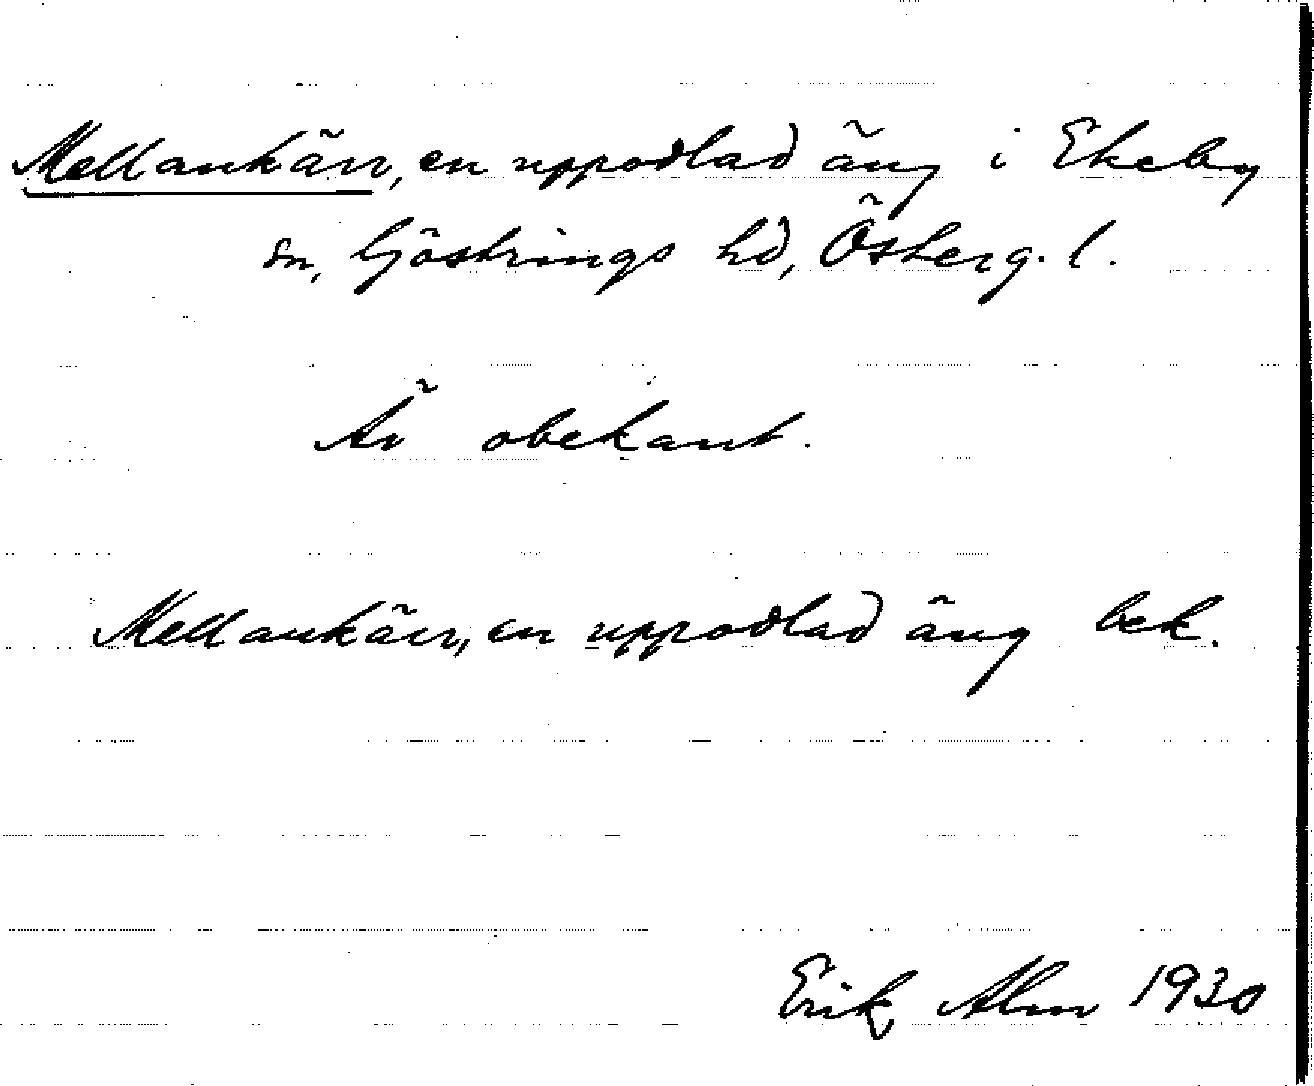 Mellankärr, en uppodlad äng i Ekeby
sn, Göstrings hd, Österg. l.
Är obekant.
Mellankärr, en uppodlad äng bek.
Erik Alm 1930